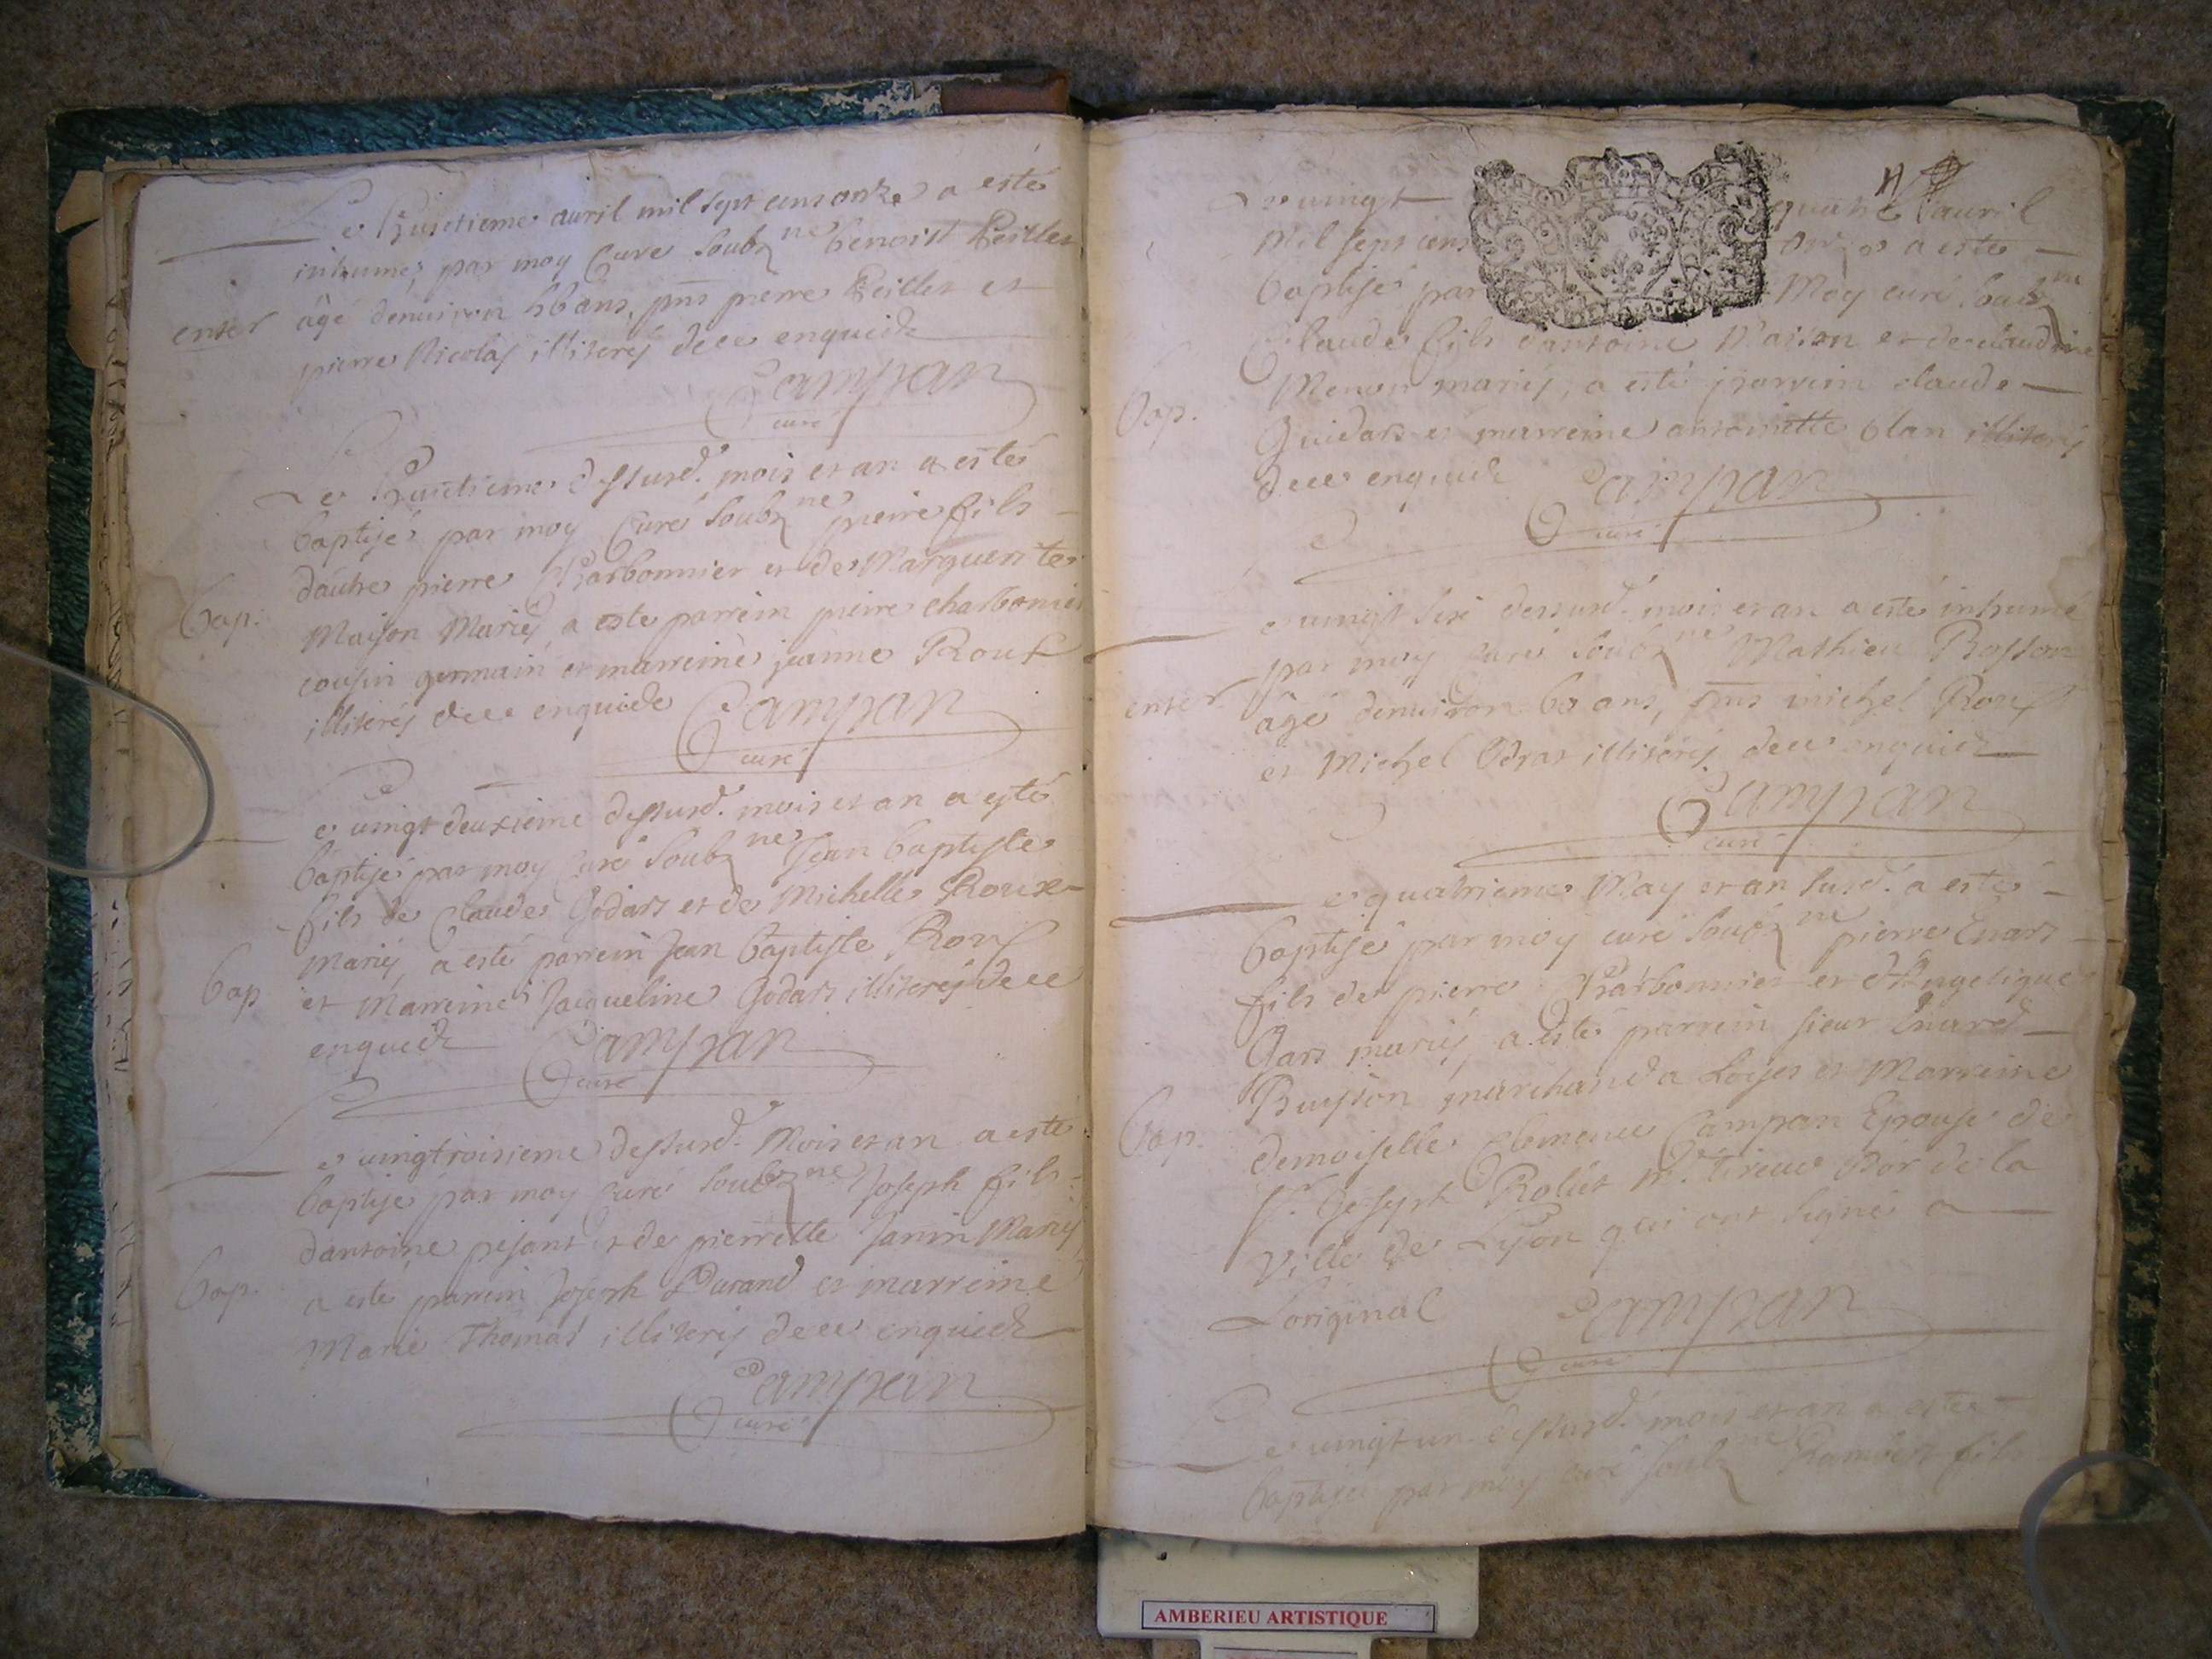 Le huictieme auril mil sept cens onze a esté
inhumé par moy Curé Soubz.ne benoist Peillet
enter
âgé denuiron 56 ans, pns pierre Peillet et
pierre Nicolas illiterés de ce enquide
Campan
curé
Le huictieme dessusd. mois et an a esté
baptisé par moy Curé Soubz.ne pierre fils
dautre pierre Charbonnier et de Marguerite
Bap.
Maison Mariés a esté parrein pierre charbonnier
cousin germain et marreine jeanne Roux
illiterés de ce enquide Campan
curé
Le uingt deuxieme dessusd. mois et an a esté
baptisé par moy Curé Soubz.ne Jean baptiste
fils de Claude Godars et de Michelle Roux
mariés, a esté parrein Jean Baptiste Roux
Bap
et Marreine Jacqueline Godars illiterés de ce
enquide Campan
curé
Le uingtroisieme dessusd. Mois et an a esté
baptisé par moy Curé Soubz.ne Joseph fils
dantoine pesant et de pierrette Janin Mariés
Bap.
a esté parrein Joseph Durand et marreine
Marie Thomas illiterés de ce enquide
Campan
curé
Le uingt quatre auril
Mil sept cens onze a esté
baptisé par Moy curé Soubz.ne
Claude fils dantoine Maison et de claudine
Bap.
Menon mariés, a esté parrein claude
Guidars et marreine antoinette illiterés
de ce enquide Campan
curé
Le uingt six dessusd. mois et an a esté inhumé
par moy Curé Soubz.ne Mathieu Bosson
enter
âgé denuiron 60 ans, pns michel Roux
et Michel illiterés de ce enquide
Campan
curé
Le quatrieme May et an susd. a esté
baptisé par moy curé Soubz.ne pierre Enars
fils de pierre Charbonnier et dAngelique
Gars mariés, a esté parrein sieur Enard
Buisson marchand a Loyes et Marreine
Bap.
demoiselle Clemence Campan Epouse de
Sr. Joseph Rolet m. tireur dor de la
Ville de Lyon qui ont signé a
Loriginal Campan
curé
Le uingt un dessusd. mois et an a esté
baptisé par moy curé Soubz.ne fils
AMBERIEU ARTISTIQUE